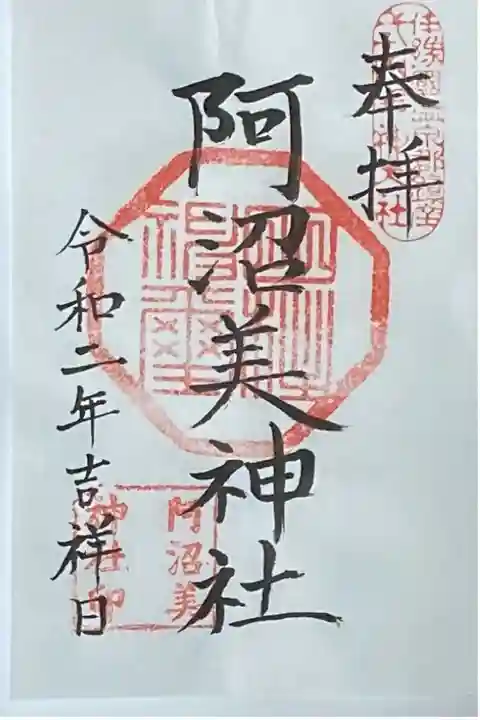 奉拝
阿沼美神社
令和二年吉祥日
阿沼美
神社印